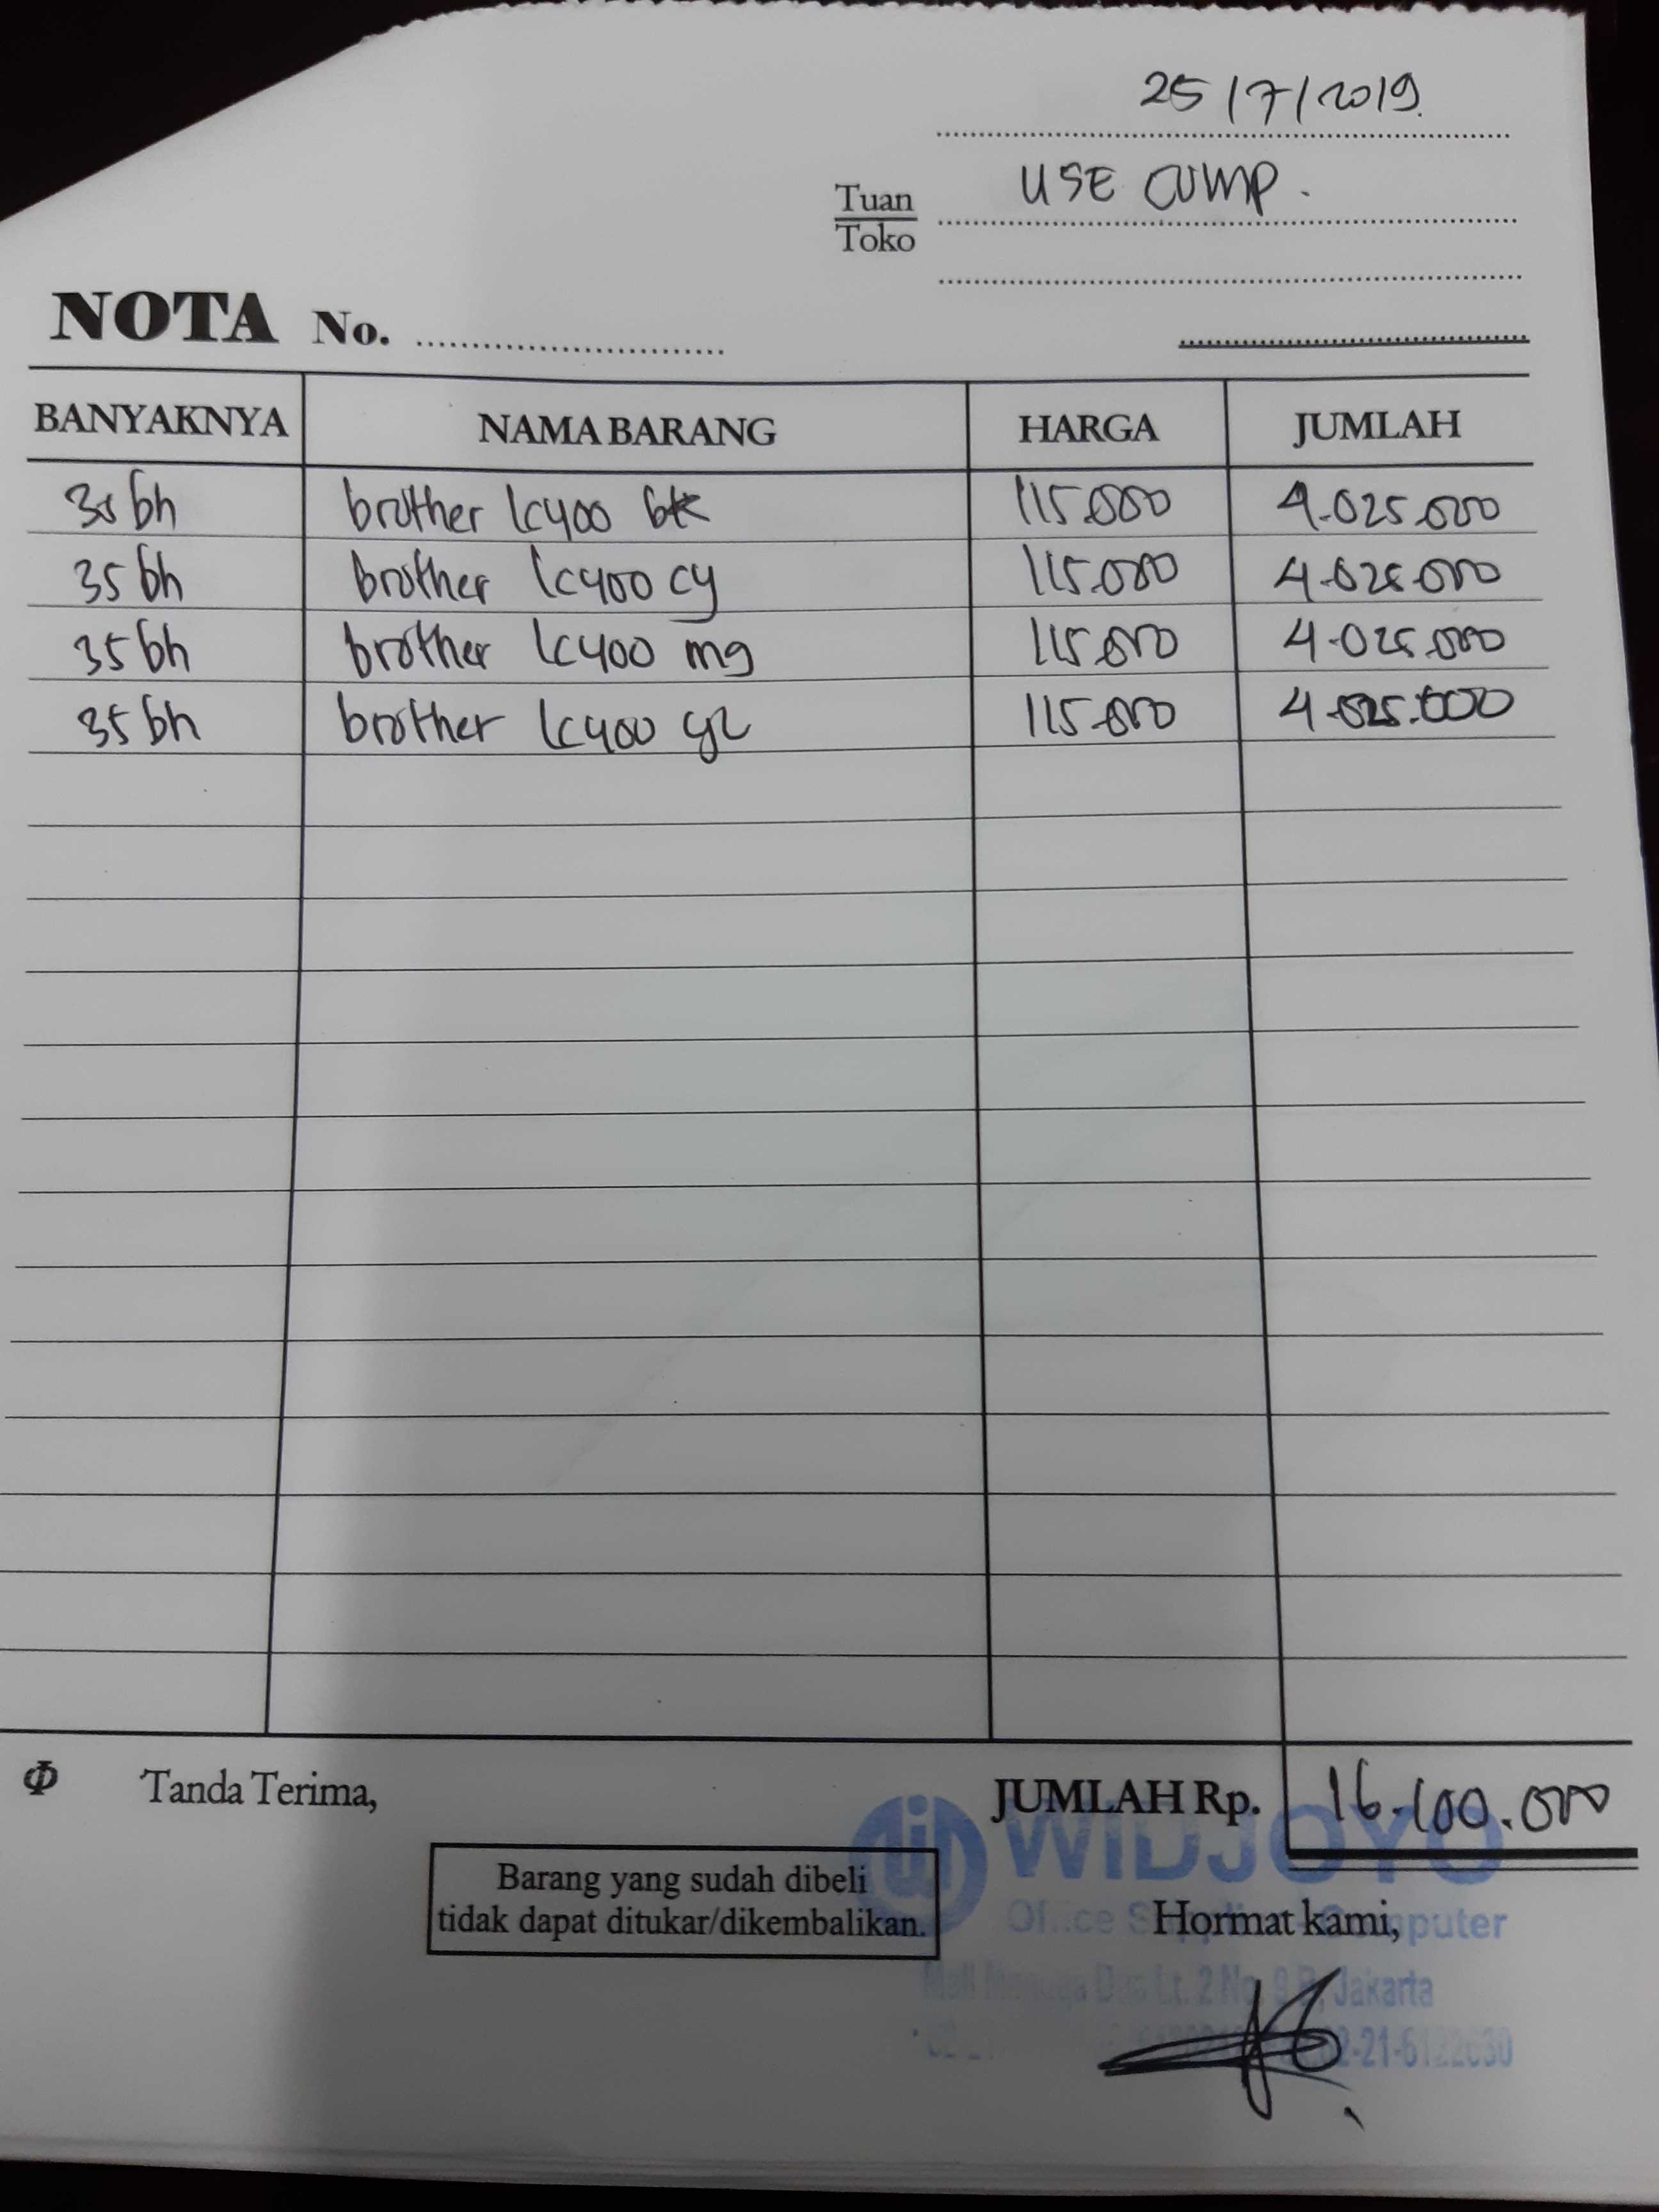 25/7/2019.
Tuan USE COMP.
Toko
NOTA No.
BANYAKNYA NAMA BARANG HARGA JUMLAH
35 bh brother lc400 bk 115.000 4.025.000
35 bh brother lc400 cy 115.000 4.025.000
35 bh brother lc400 mg 115.000 4.025.000
35 bh brother lc400 yl 115.000 4.025.000
Tanda Terima, JUMLAH Rp. 16.100.000
WIDJOYO
Barang yang sudah dibeli
tidak dapat ditukar/dikembalikan.
Office Computer
Hormat kami,
Mall Mangga Dua Lt. 2 No. Jakarta